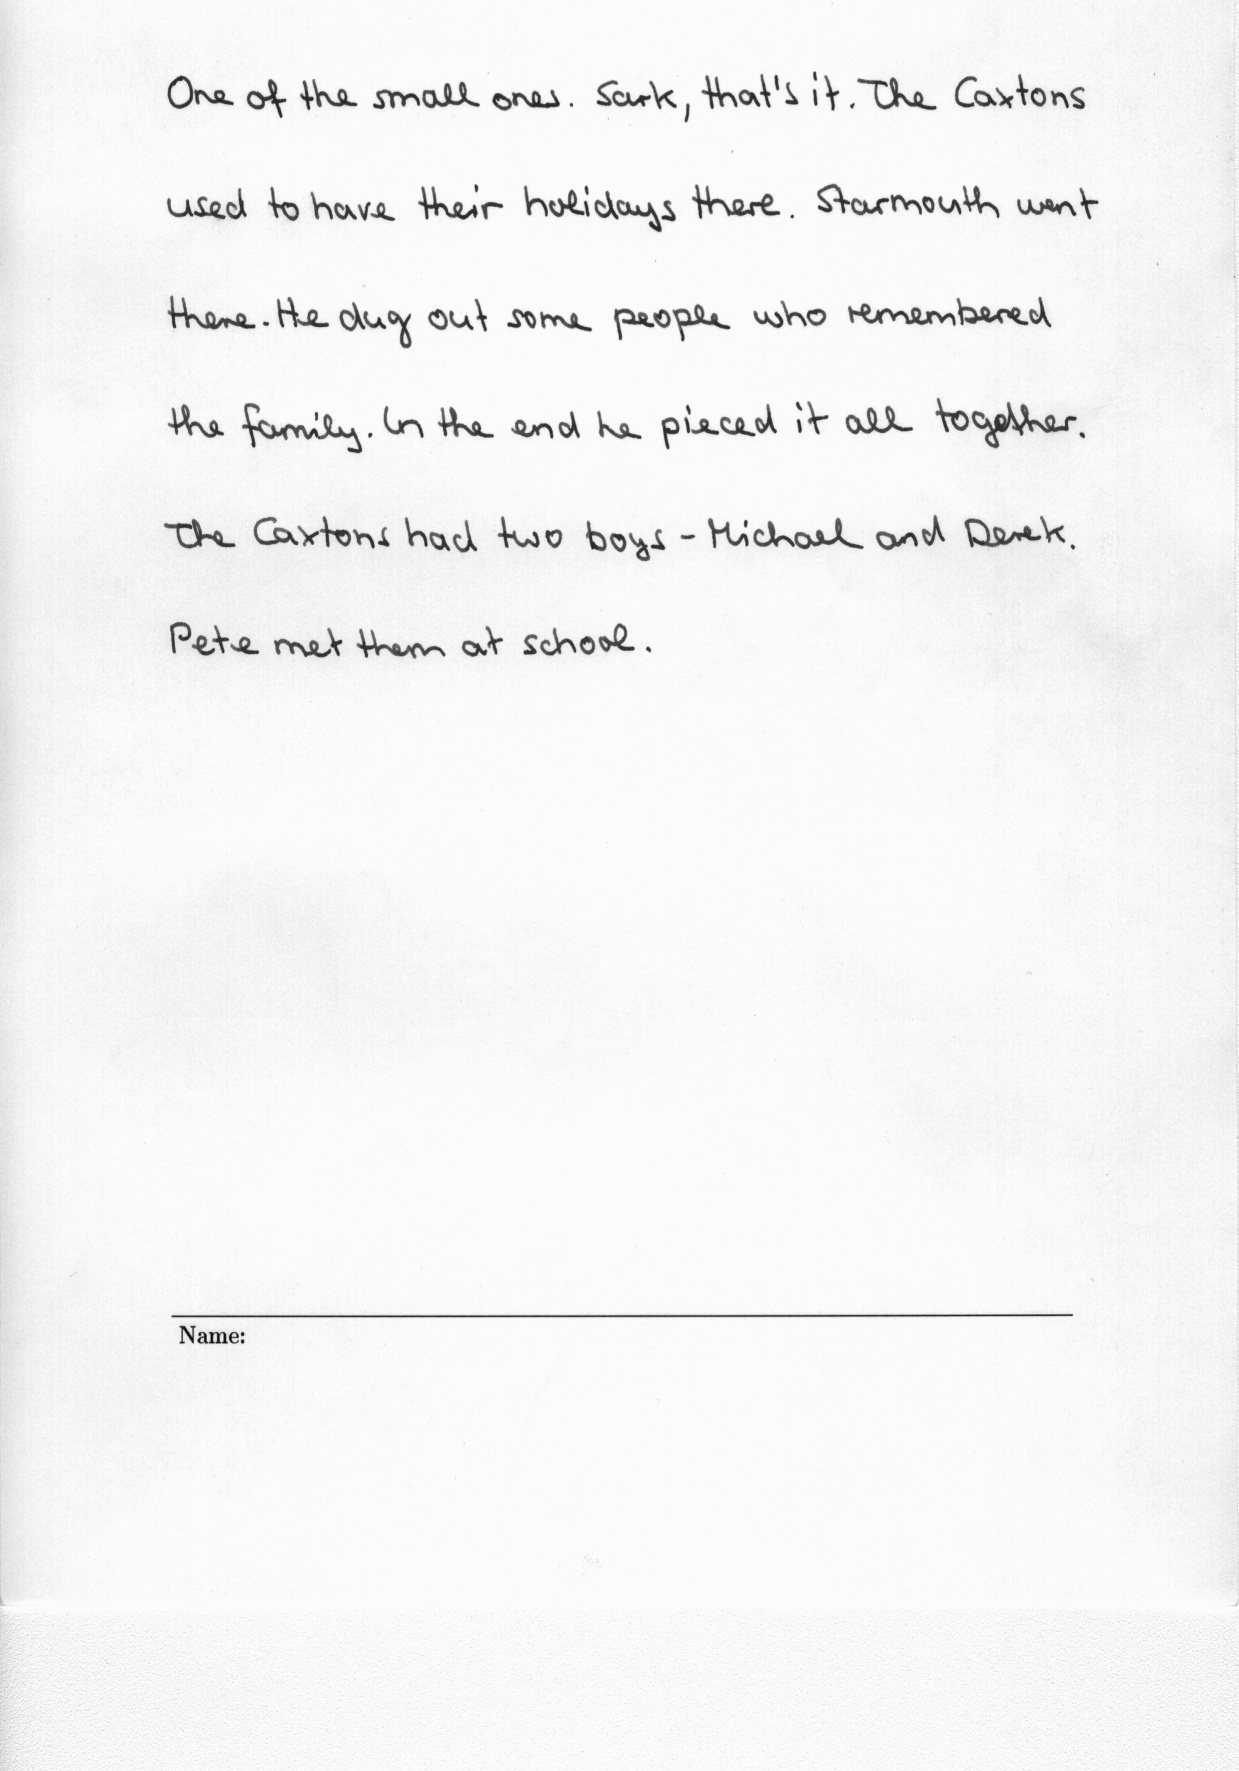 One of the small ones. Sark, that's it. The Caxtons
used to have their holidays there. Starmouth went
there. He dug out some people who remembered
the family. In the end he pieced it all together.
The Caxtons had two boys - Michael and Derek.
Pete met them at school.
Name: